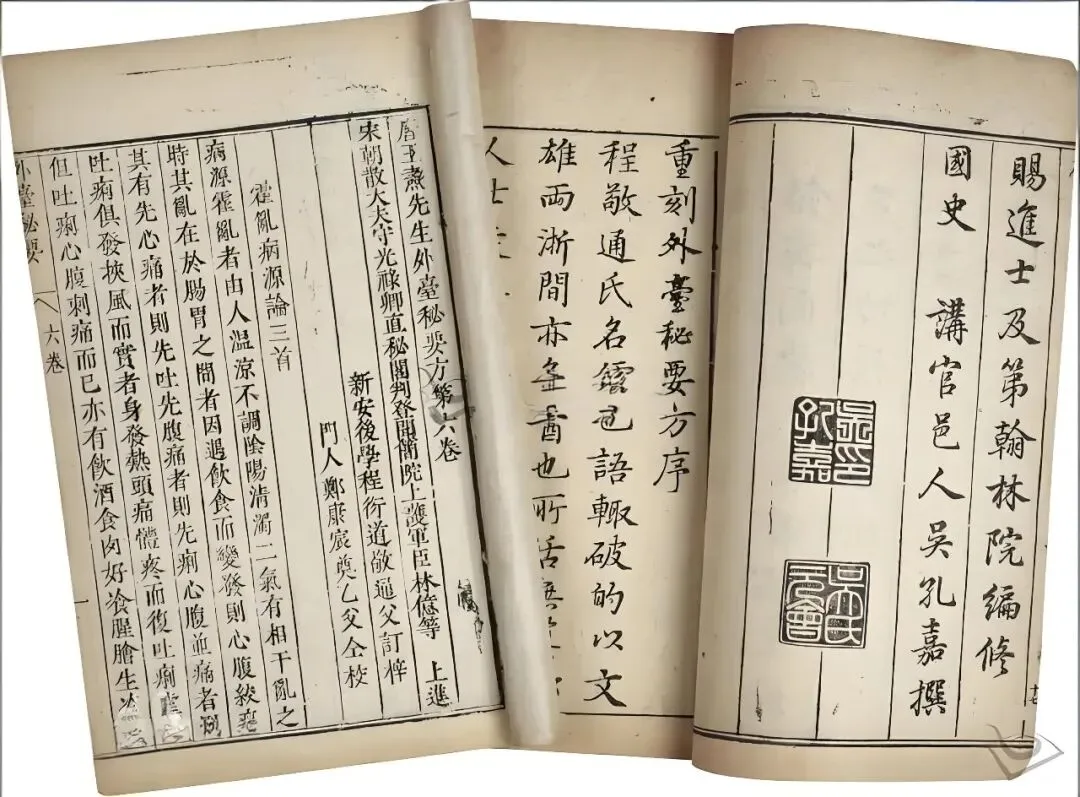 賜進士及第翰林院編修
國史 講官邑人吳孔嘉撰
吳印孔嘉
重刻外臺秘要方序
程敬通氏名也語輒破的以文
雄兩浙間亦也所活
人士
唐王燾先生外臺秘要方第六卷
宋朝散大夫守光祿卿直秘閣判登聞檢院上護軍臣林億等 上進
新安後學程衍道敬通父訂梓
門人鄭康宸奠乙父仝校
霍亂病源論三首
病源霍亂者由人溫涼不調陰陽清濁二氣有相干亂之
時其亂在於腸胃之間者因遇飲食而變發則心腹絞痛
其有先心痛者則先吐先腹痛者則先痢心腹並痛者則
吐痢俱發挾風而實者身發熱頭痛體疼而復吐痢虛者
但吐痢心腹刺痛而已亦有飲酒食肉好飡腥膾生冷
外臺秘要 六卷